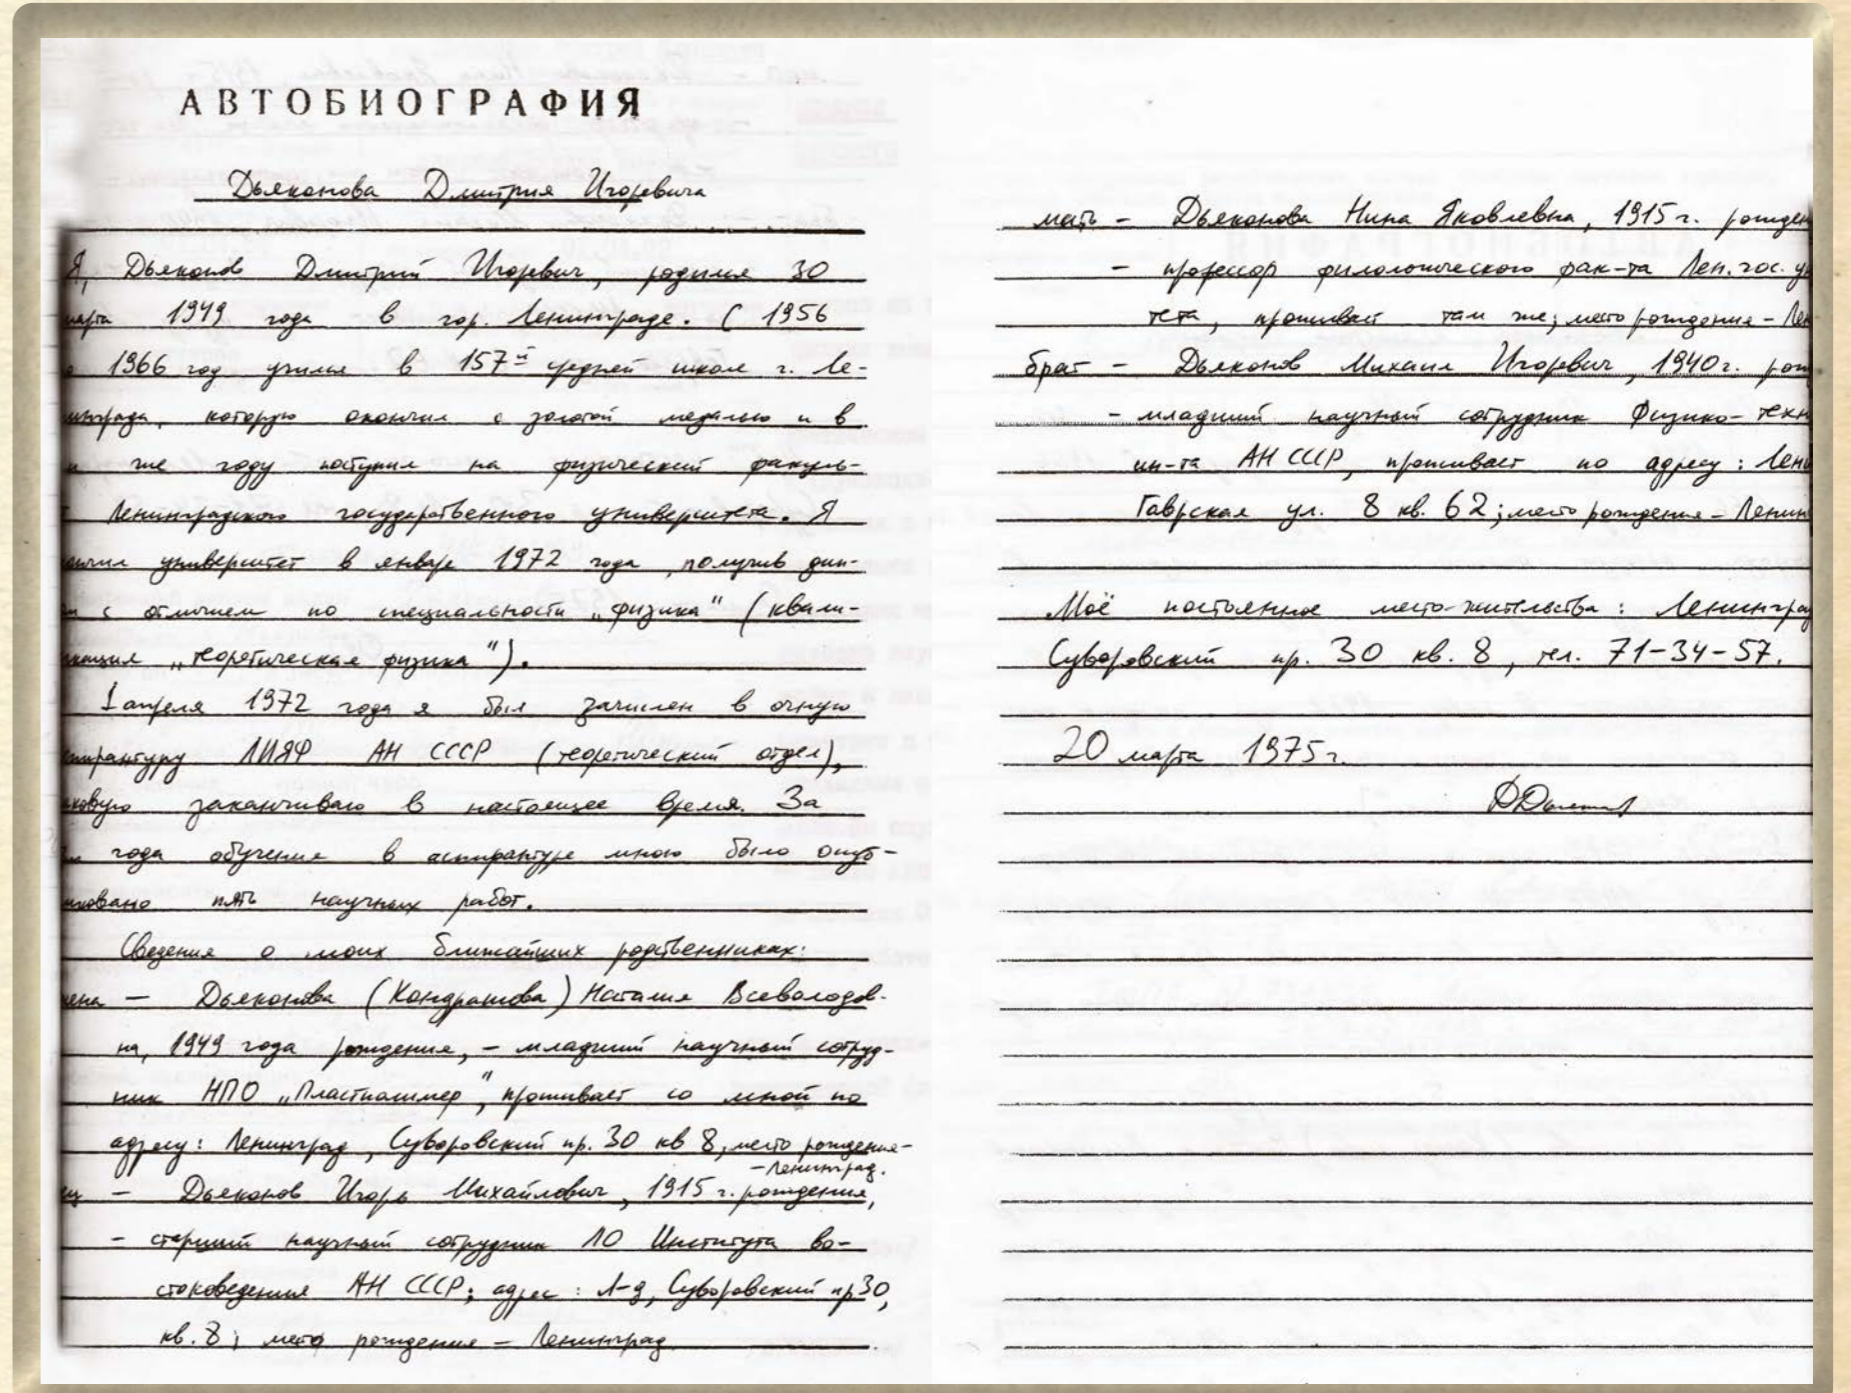 АВТОБИОГРАФИЯ
Дьяконова Дмитрия Игоревича
Я, Дьяконов Дмитрий Игоревич, родился 30
марта 1949 года в гор. Ленинграде. С 1956
1966 год учился в 157й средней школе г. Ле-
нинграда, которую окончил с золотой медалью и в
же году поступил на физический факуль-
т Ленинградского государственного университета. Я
окончил университет в январе 1972 года, получив дип-
м с отличием по специальности „физика“ (квали-
кация „теоретическая физика“).
1 апреля 1972 года я был зачислен в очную
спирантуру ЛИЯФ АН СССР (теоретический отдел),
которую заканчиваю в настоящее время. За
года обучения в аспирантуре мною было опуб-
ликовано пять научных работ.
Сведения о моих ближайших родственниках:
жена — Дьяконова (Кондрашова) Наталия Всеволодов-
на, 1949 года рождения, – младший научный сотруд-
ник НПО „Пластполимер“, проживает со мной по
адресу: Ленинград, Суворовский пр. 30 кв 8, место рождения–
– Ленинград.
ец – Дьяконов Игорь Михайлович, 1915 г. рождения,
– старший научный сотрудник ЛО Института во-
стоковедения АН СССР; адрес: Л-д, Суворовский пр 30,
кв. 8; место рождения – Ленинград
мать – Дьяконова Нина Яковлевна, 1915 г. рожден
– профессор филологического фак-та Лен. гос. ун
тета, проживает там же; место рождения – Лен
брат – Дьяконов Михаил Игоревич, 1940 г. рож
– младший научный сотрудник Физико-техн
ин-та АН СССР, проживает по адресу: Лени
Таврская ул. 8 кв. 62; место рождения – Ленин
Моё постоянное место-жительства: Ленинград
Суворовский пр. 30 кв. 8, тел. 71-34-57.
20 марта 1975 г.